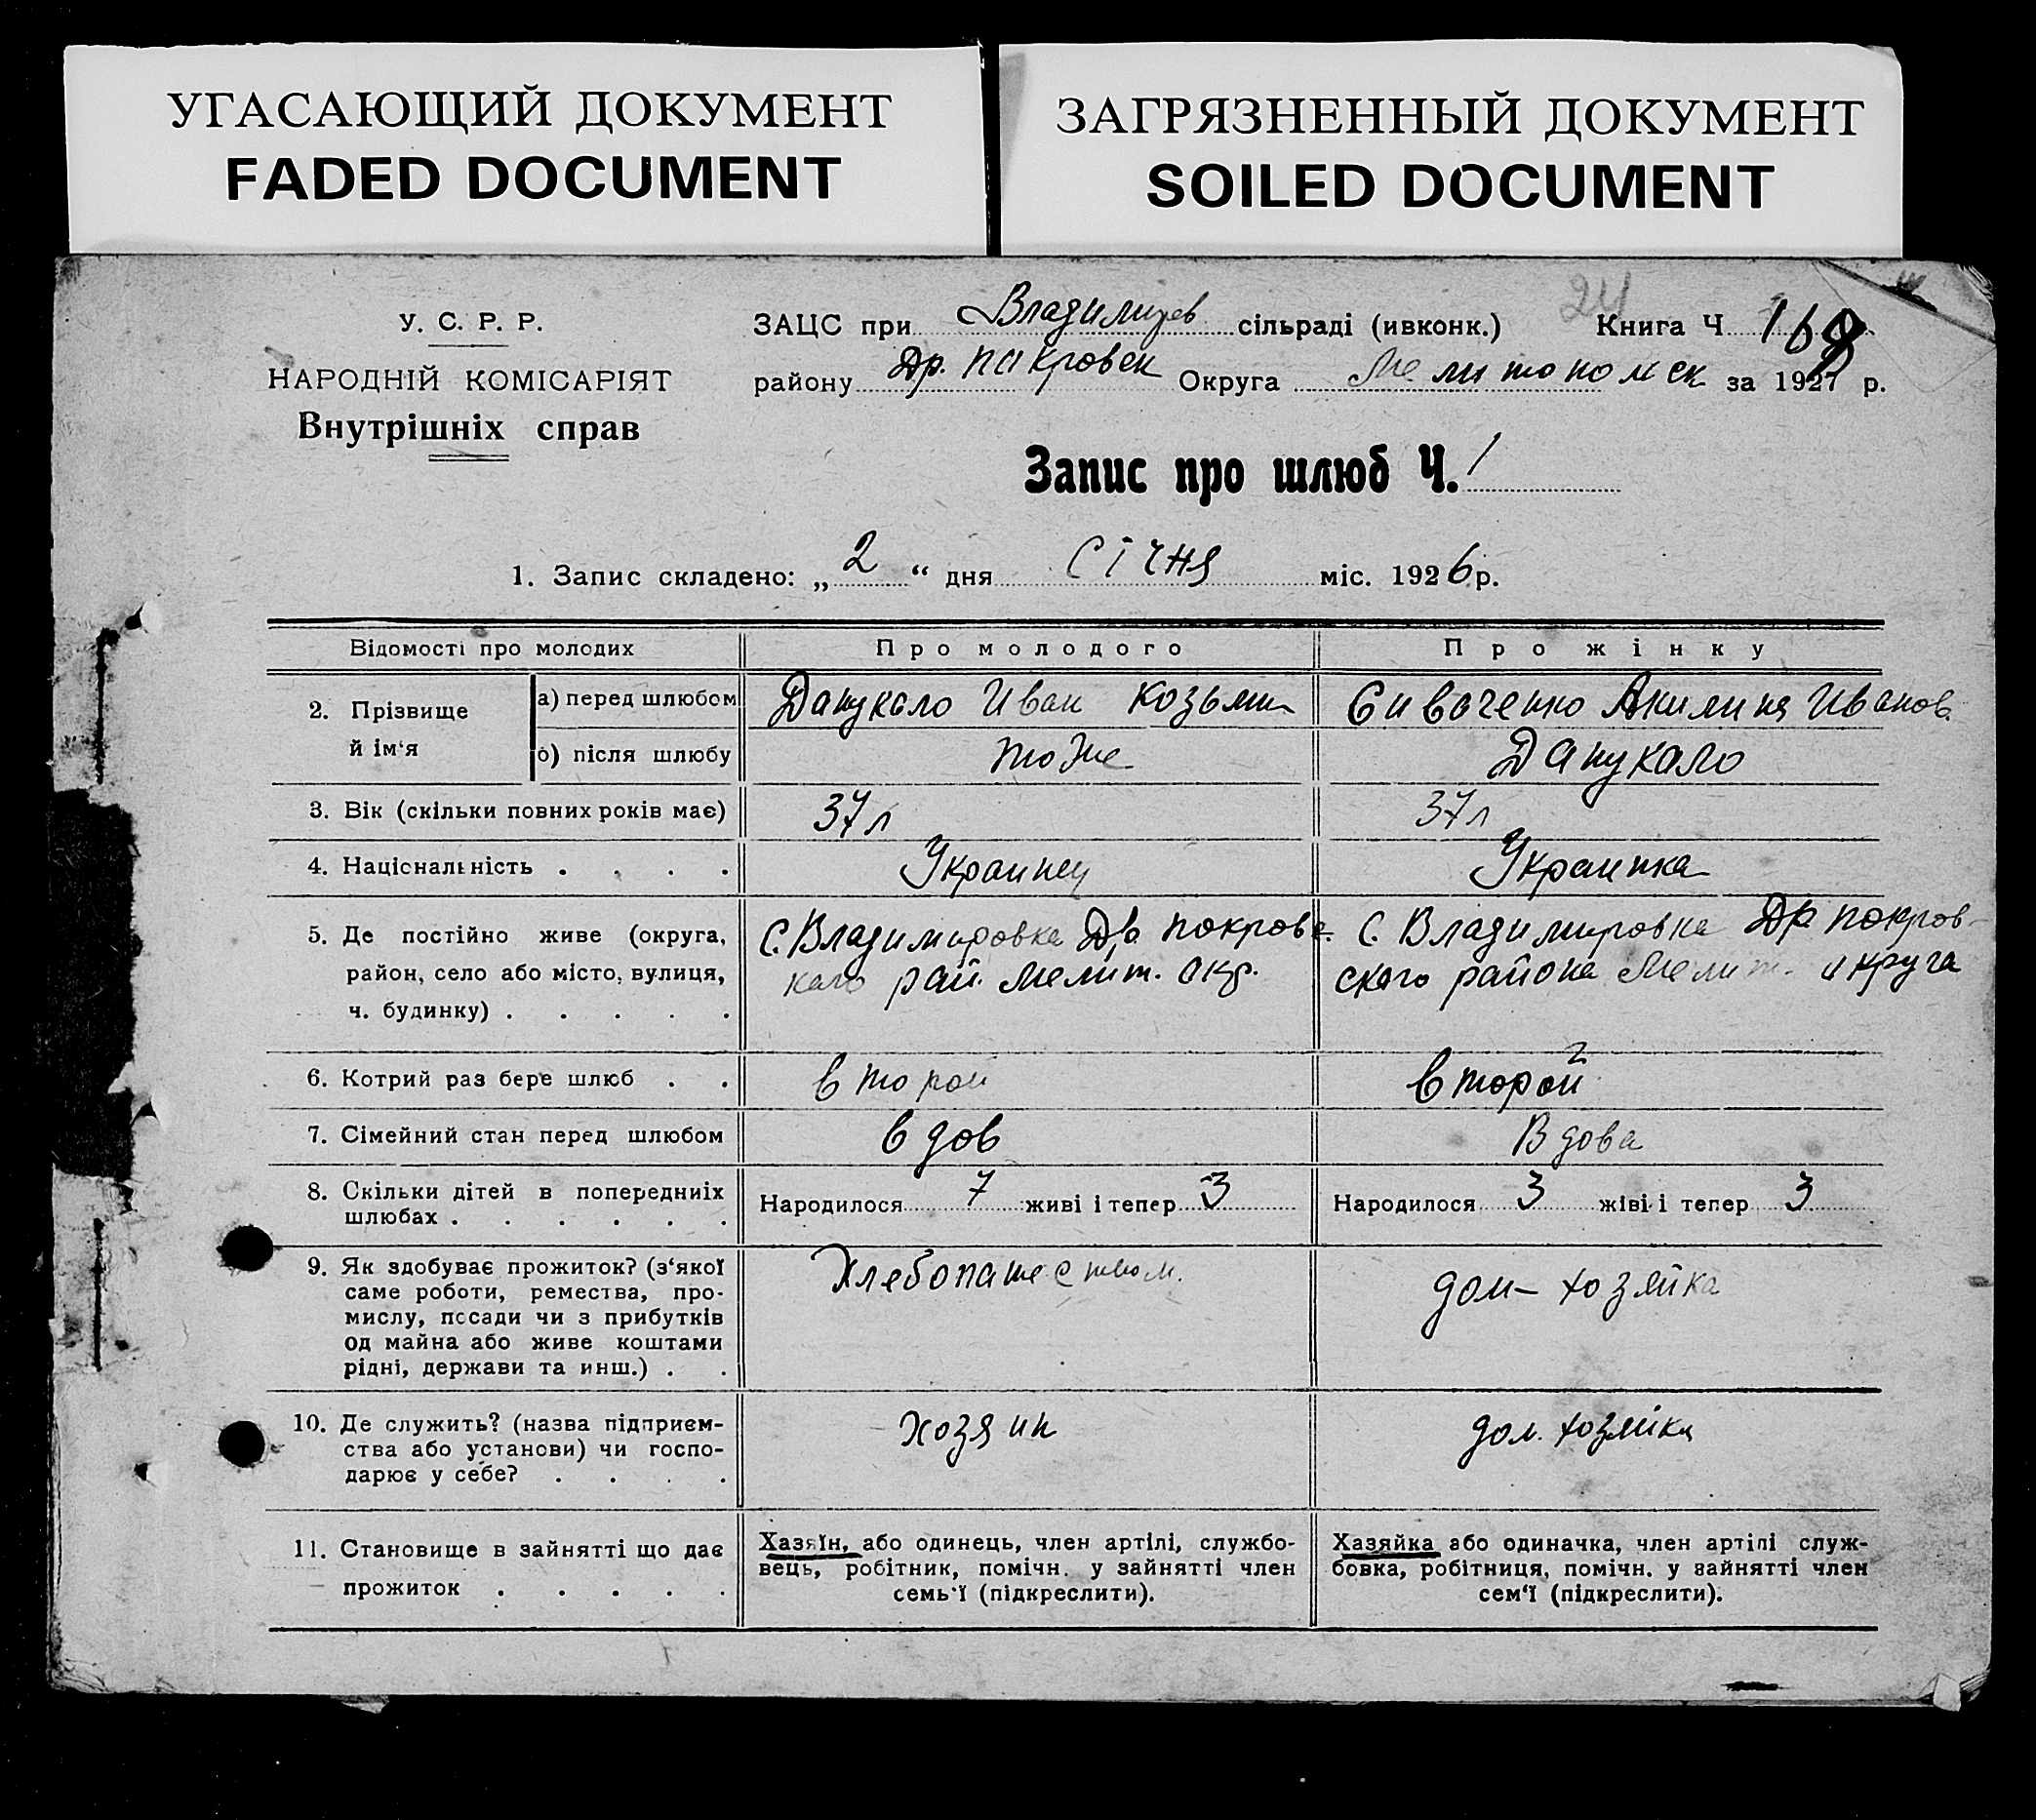 УГАСАЮЩИЙ ДОКУМЕНТ
FADED DOCUMENT
ЗАГРЯЗНЕННЫЙ ДОКУМЕНТ
SOILED DOCUMENT
У. С. Р. Р.
НАРОДНІЙ КОМІСАРІЯТ
Внутрішніх справ
24
ЗАЦС при Владимирев сільраді (ивконк.) Книга Ч
району Др. Покровск Округа Мелитопольск за 1927 р.
Запис про шлюб Ч. 1
1. Запис складено: „ 2 “ дня Січня міс. 1926 р.
Відомості про молодих Про молодого Про жінку
2. Прізвище й ім‘я
а) перед шлюбом Дацукало Иван Козьмин Сиваченко Акилина Иванов.
б) після шлюбу тоже Дацукало
3. Вік (скільки повних років має) 37 л 37 л
4. Національність . . . . Украинец Украинка
5. Де постійно живе (округа, район, село або місто, вулиця, ч. будинку) . . . . .
С. Владимировка Др. Покровс
кого рай. Мелит. окр.
С. Владимировка Др Покров-
ского района Мелит. округа
6. Котрий раз бере шлюб . . второй 2 второй
7. Сімейний стан перед шлюбом вдов Вдова
8. Скільки дітей в попередниіх шлюбах . . . . . .
Народилося 7 живі і тепер 3 Народилося 3 жіві і тепер 3
9. Як здобуває прожиток? (з‘якої
саме роботи, ремества, про-
мислу, посади чи з прибутків
од майна або живе коштами
рідні, держави та инш.) . .
Хлебопашеством.
дом-хозяйка
10. Де служить? (назва підприєм-
ства або установи) чи госпо-
дарює у себе? . . . .
Хозяин
дом. хозяйка
11. Становище в зайнятті що дає
прожиток . . . . .
Хазяїн, або одинець, член артілі, службо-
вець, робітник, помічн. у зайнятті член
семь‘ї (підкреслити).
Хазяйка або одиначка, член артілі служ-
бовка, робітниця, помічн. у зайнятті член
сем‘ї (підкреслити).